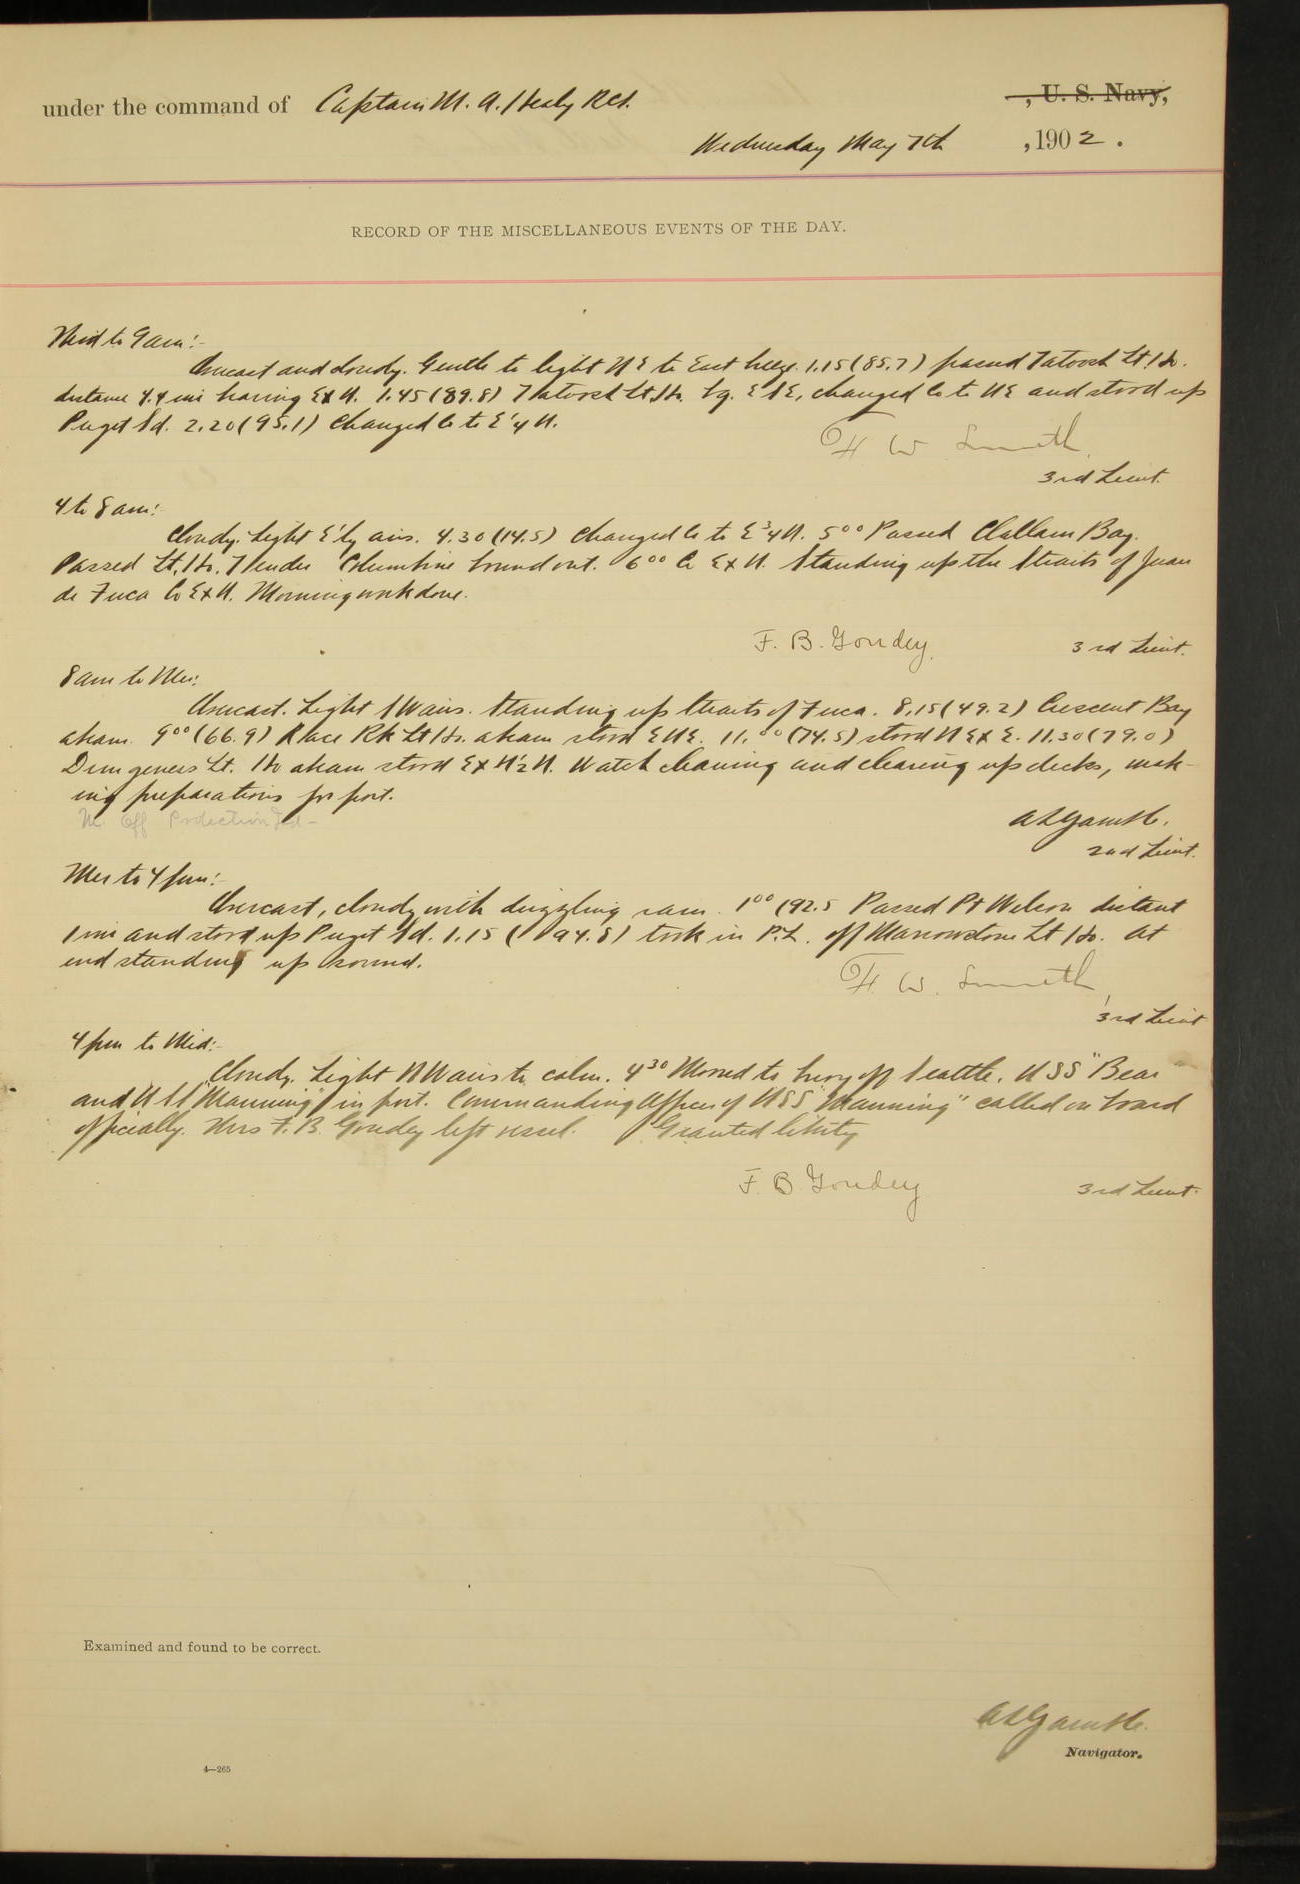 under the command of Captain M. A. Healy RCS. , U. S. Navy,
Wednesday May 7th , 1902.
RECORD OF THE MISCELLANEOUS EVENTS OF THE DAY.
Mid to 4 am:-
Overcast and cloudy. Gentle to light NE to East breeze. 1.15 (85.7) passed Tatoosh Lt. Ho.
distance 4.4 mi bearing ExN. 1.45 (89.8) Tatoosh Lt. Ho. bg. ESE, changed Co to NE and stood up
Puget Sd. 2.20 (95.1) Changed Co to E¼N.
F W Smith
3rd Lieut.
4 to 8 am:-
Cloudy. Light E'ly airs. 4.30 (14.5) Changed Co to E¾N. 5⁰⁰ Passed Clallam Bay.
Passed Lt. Ho. Tender Columbine bound out. 6⁰⁰ Co ExN. Standing up the Straits of Juan
de Fuca Co ExN. Morning work done.
F. B. Goudey. 3rd Lieut.
8 am to Mer:
Overcast. Light SW airs. Standing up Straits of Fuca. 8.15 (49.2) Crescent Bay
abeam. 9⁰⁰ (66.9) Race Rk Lt Ho. abeam stood ENE. 11.⁰⁰ (74.5) stood NExE. 11.30 (79.0)
Dungeness Lt. Ho abeam stood ExN½N. Watch cleaning and clearing up decks, mak-
ing preparations for port.
M. Off Protection Isd -
A L Gamble.
2nd Lieut.
Mer to 4 pm:-
Overcast, cloudy with drizzling rain. 1⁰⁰ (92.5 Passed Pt Wilson distant
1 mi and stood up Puget Sd. 1.15 ( 94.8) took in P.L. off Marrowstone Lt Ho. At
end standing up sound.
F. W. Smith
3rd Lieut
4 pm to Mid:-
Cloudy. Light NW airs to calm. 4³⁰ Moored to buoy off Seattle. USS "Bear"
and U.S.S "Manning" in port. Commanding Officer of USS "Manning" called on board
officially. Mrs F. B. Goudey left vessel. Granted liberty
F. B Goudey 3rd Lieut.
Examined and found to be correct.
A L Gamble.
Navigator.
4—265